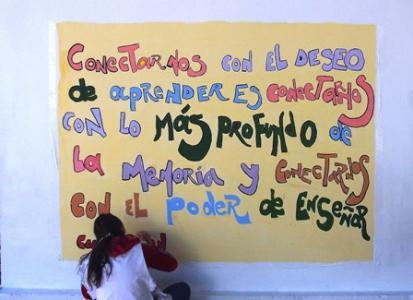 CONECTARNOS CON EL DESEO
de APRENDER ES CONECTARNOS
CON LO MÁS PROFUNDO de
LA MEMORIA Y CONECTARNOS
CON EL PODER de ENSEÑAR